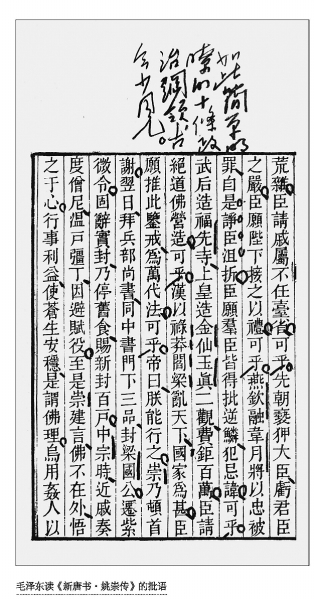 如此简单明
瞭的十條政
治綱領古
今少見。
荒雜臣請戚屬不任臺省可乎先朝褻狎大臣虧君臣
之嚴臣願陛下接之以禮可乎燕欽融韋月將以忠被
罪自是諍臣沮折臣願羣臣皆得批逆鱗犯忌諱可乎
武后造福先寺上皇造金仙玉真二觀費鉅百萬臣請
絕道佛營造可乎漢以祿莽閻梁亂天下國家為甚臣
願推此鑒戒為萬代法可乎帝曰朕能行之崇乃頓首
謝翌日拜兵部尚書同中書門下三品封梁國公遷紫
微令固辭實封乃停舊食賜新封百戶中宗時近戚奏
度僧尼溫戶彊丁因避賦役至是崇建言佛不在外悟
之于心行事利益使蒼生安穩是謂佛理烏用姦人以
毛泽东读《新唐书·姚崇传》的批语